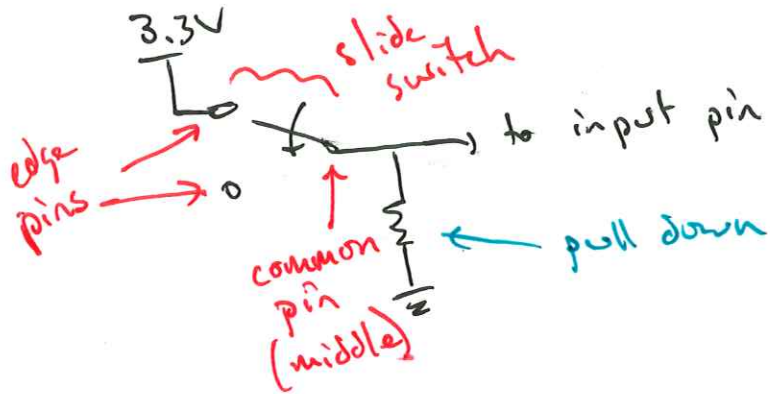 3.3V
slide
switch
to input pin
edge
pins
common
pin
(middle)
pull down